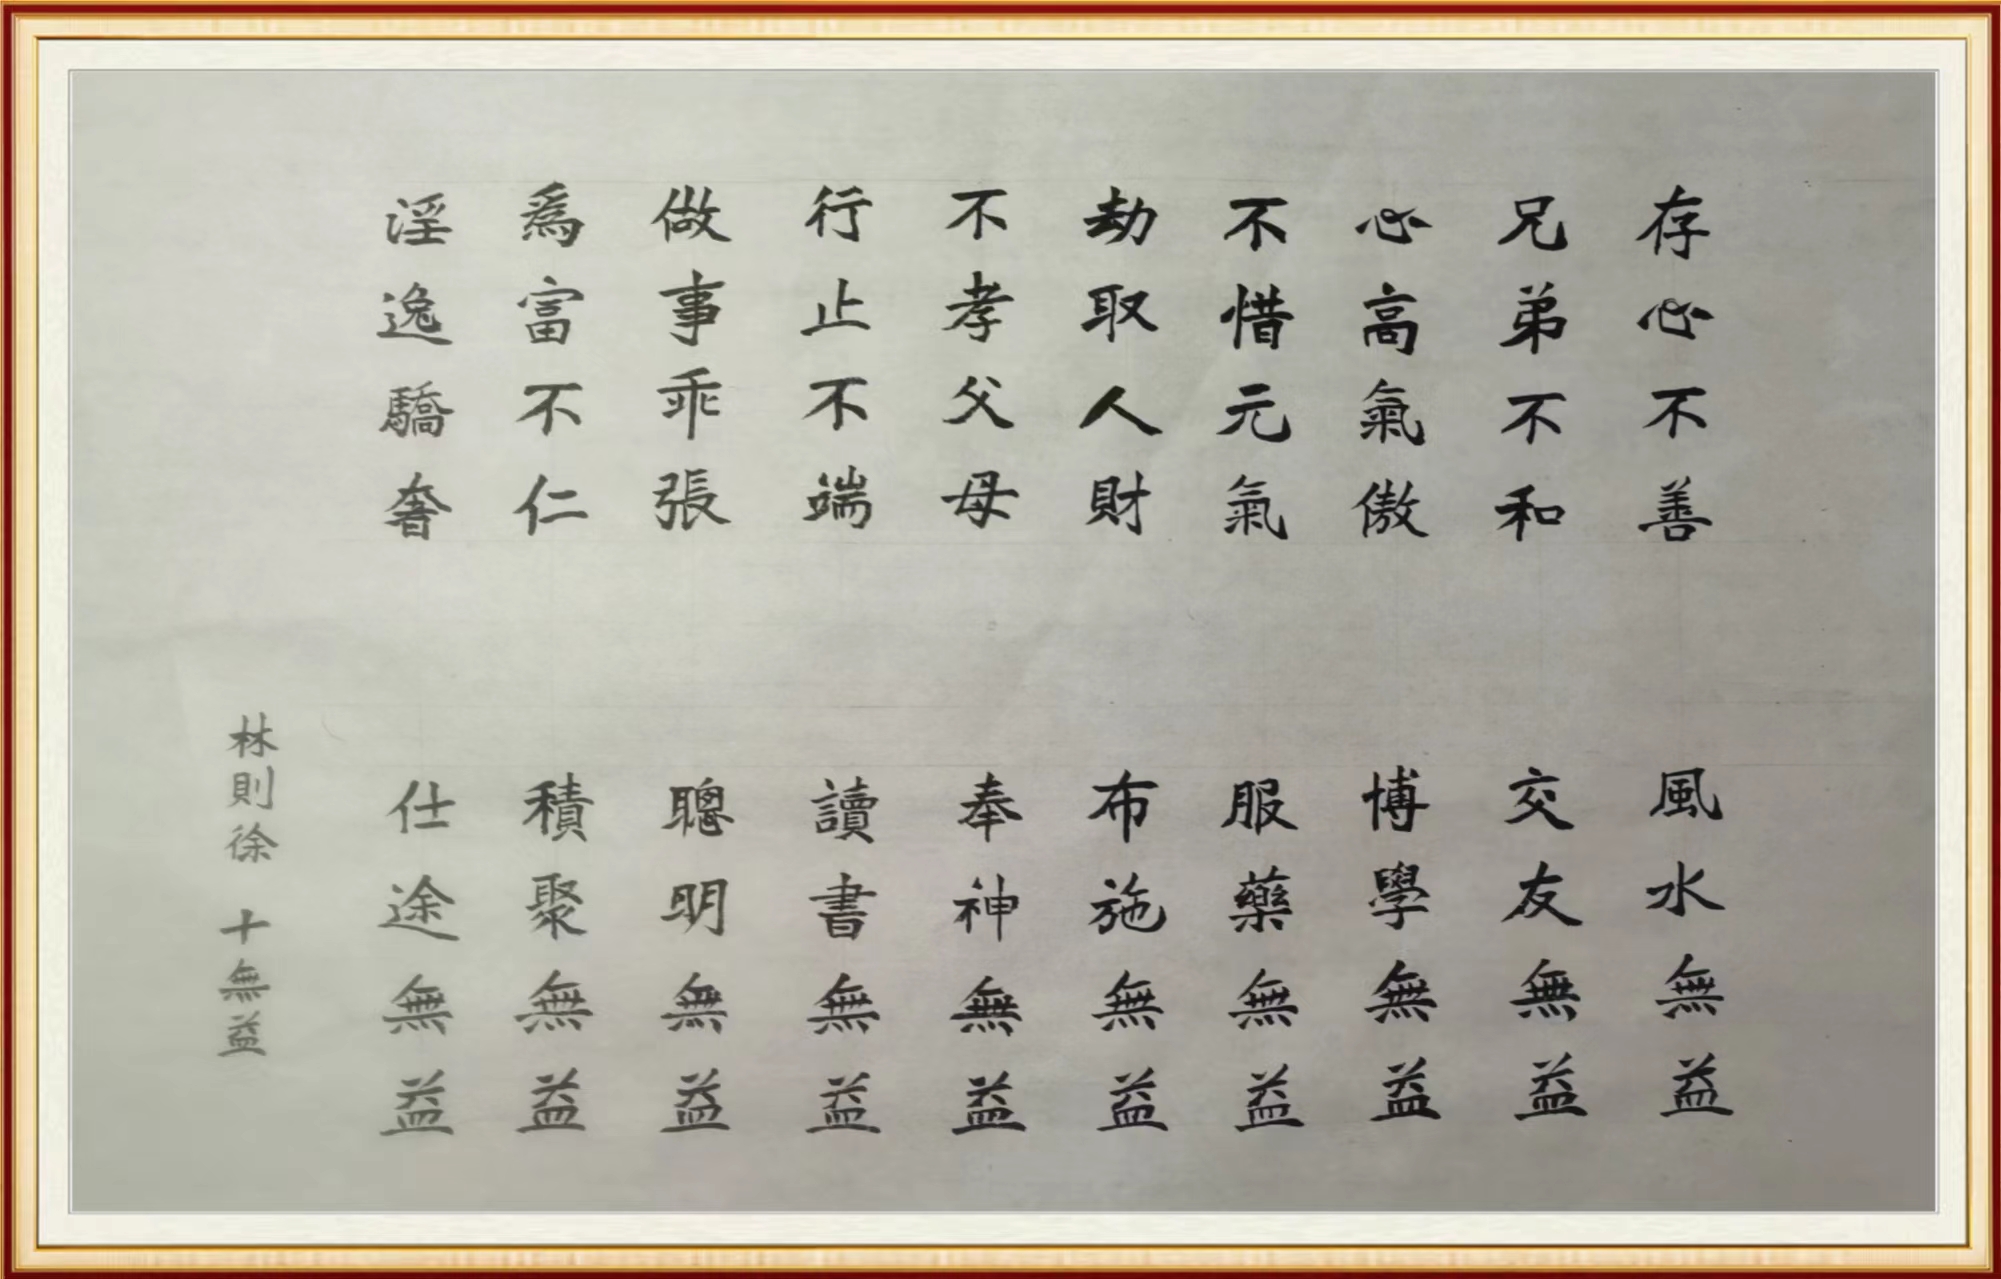 存心不善
風水無益
兄弟不和
交友無益
心高氣傲
博學無益
不惜元氣
服藥無益
劫取人財
布施無益
不孝父母
奉神無益
行止不端
讀書無益
做事乖張
聰明無益
爲富不仁
積聚無益
淫逸驕奢
仕途無益
林則徐 十無益